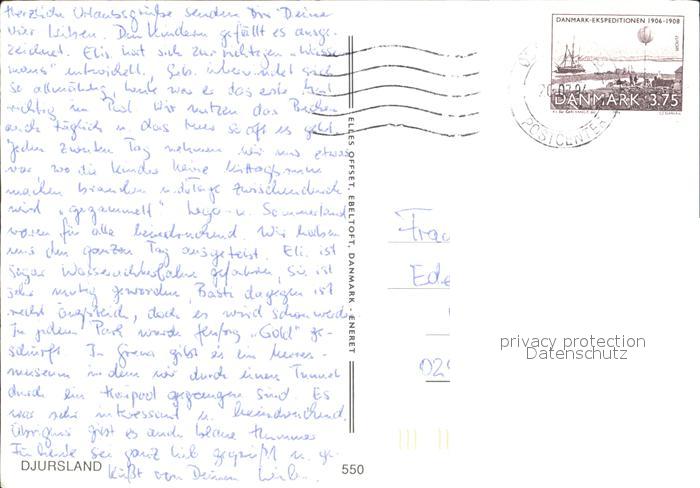 Herzliche Urlaubsgrüße senden Dir Deine
vier Lieben. Den Kindern gefällt es ausge-
zeichnet. Elis. hat sich zur richtigen „Wasser
maus" entwickelt, Seb. überwindet sich
so allmählig, heute war er das erste Mal
richtig im Pool. Wir nutzen das
auch täglich u. das Meer so oft es geht.
Jeden zweiten Tag nehmen wir uns etwas
vor, wo die Kinder keine
machen brauchen u. d. Tage zwischendurch
wird „gegammelt". Lego- u. Sommerland
waren für alle beeindruckend. Wir haben
uns den ganzen Tag ausgetobt. Eli. ist
sogar Wasserrutschbahn gefahren, sie ist
sehr mutig geworden, Basti dagegen ist
recht ängstlich, doch es wird schon werden
In jedem Park wurde fleißig „Gold" ge-
schürft. In Grena gibt es ein Meeres-
museum in dem wir durch einen Tunnel
durch ein Haipool gegangen sind. Es
war sehr interessant u. beeindruckend.
Übrigens gibt es auch blaue Hummer
Für heute sei ganz lieb gegrüßt u. ge-
küßt von Deinen
DJURSLAND
550
ELLES OFFSET, EBELTOFT, DANMARK · ENERET
DANMARK-EKSPEDITIONEN 1906-1908
DANMARK 3.75
POSTCENTER
Frau
Ede
02
privacy protection
Datenschutz